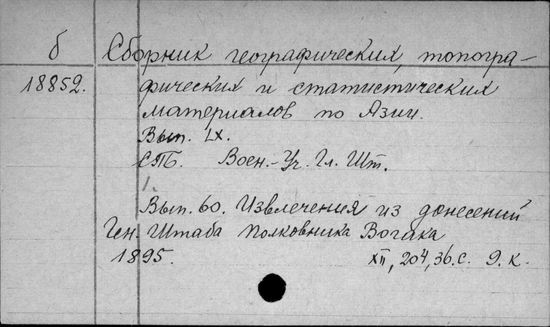 б Сборник географических, топогра-
18852. фических и статистических
материалов по Азии.
Вып. LX.
СПб. Воен.-Уч. Гл. Шт.
1.
Вып. 60. Извлечения из донесений
Ген. Штаба Полковника Вогака
1895. XII, 204, 36. с. 9. к.